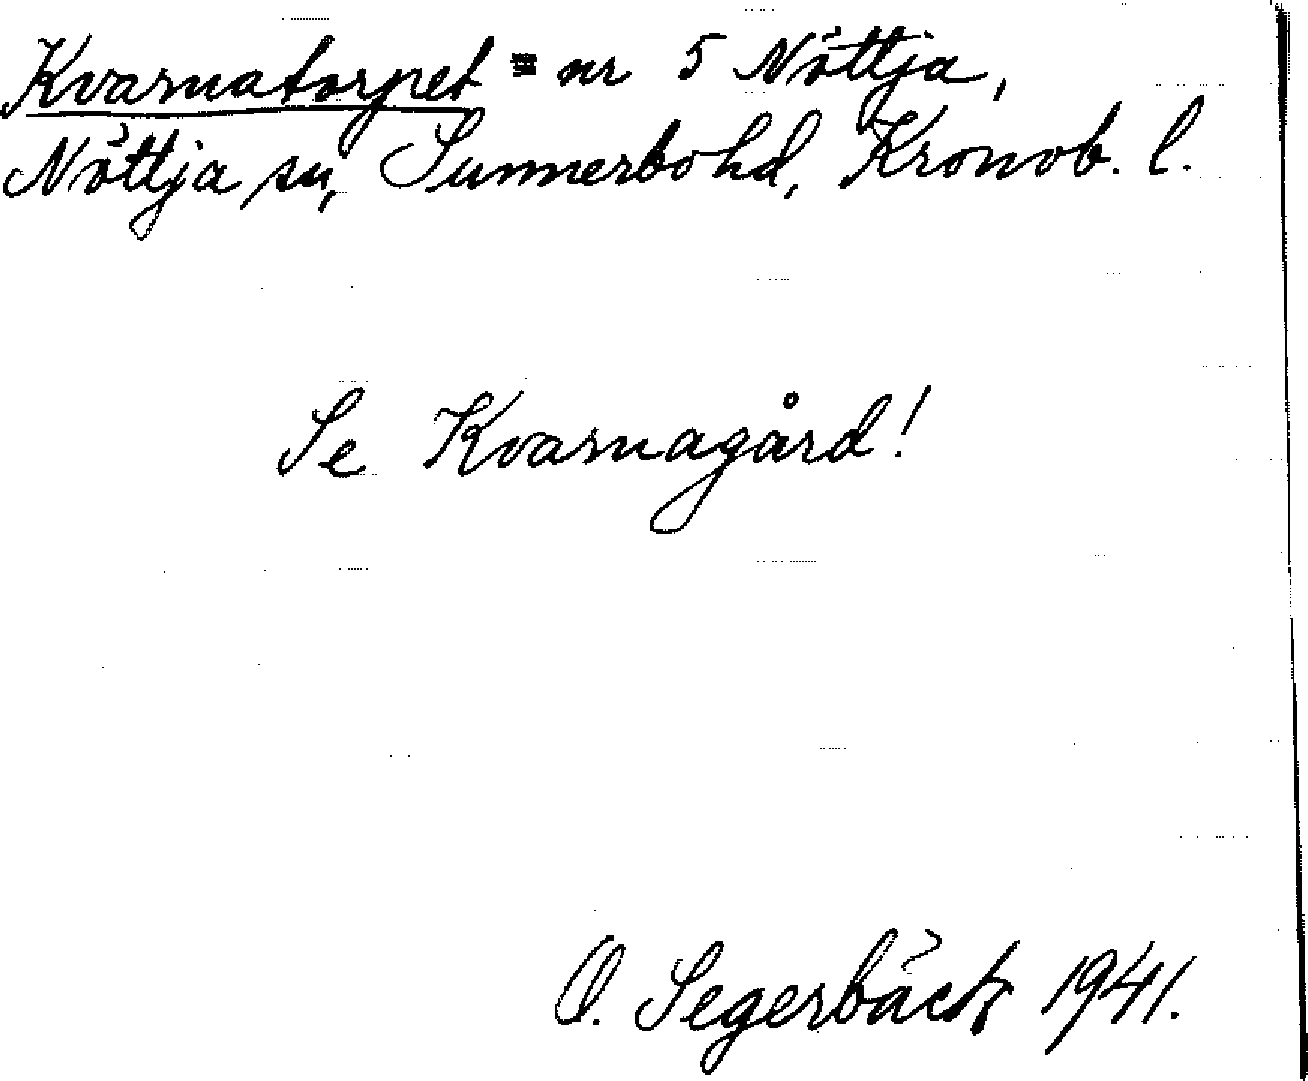 Kvarnatorpet = nr 5 Nöttja,
Nöttja sn, Sunnerbo hd, Kronob. l.
Se Kvarnagård!
O. Segerbäck 1941.